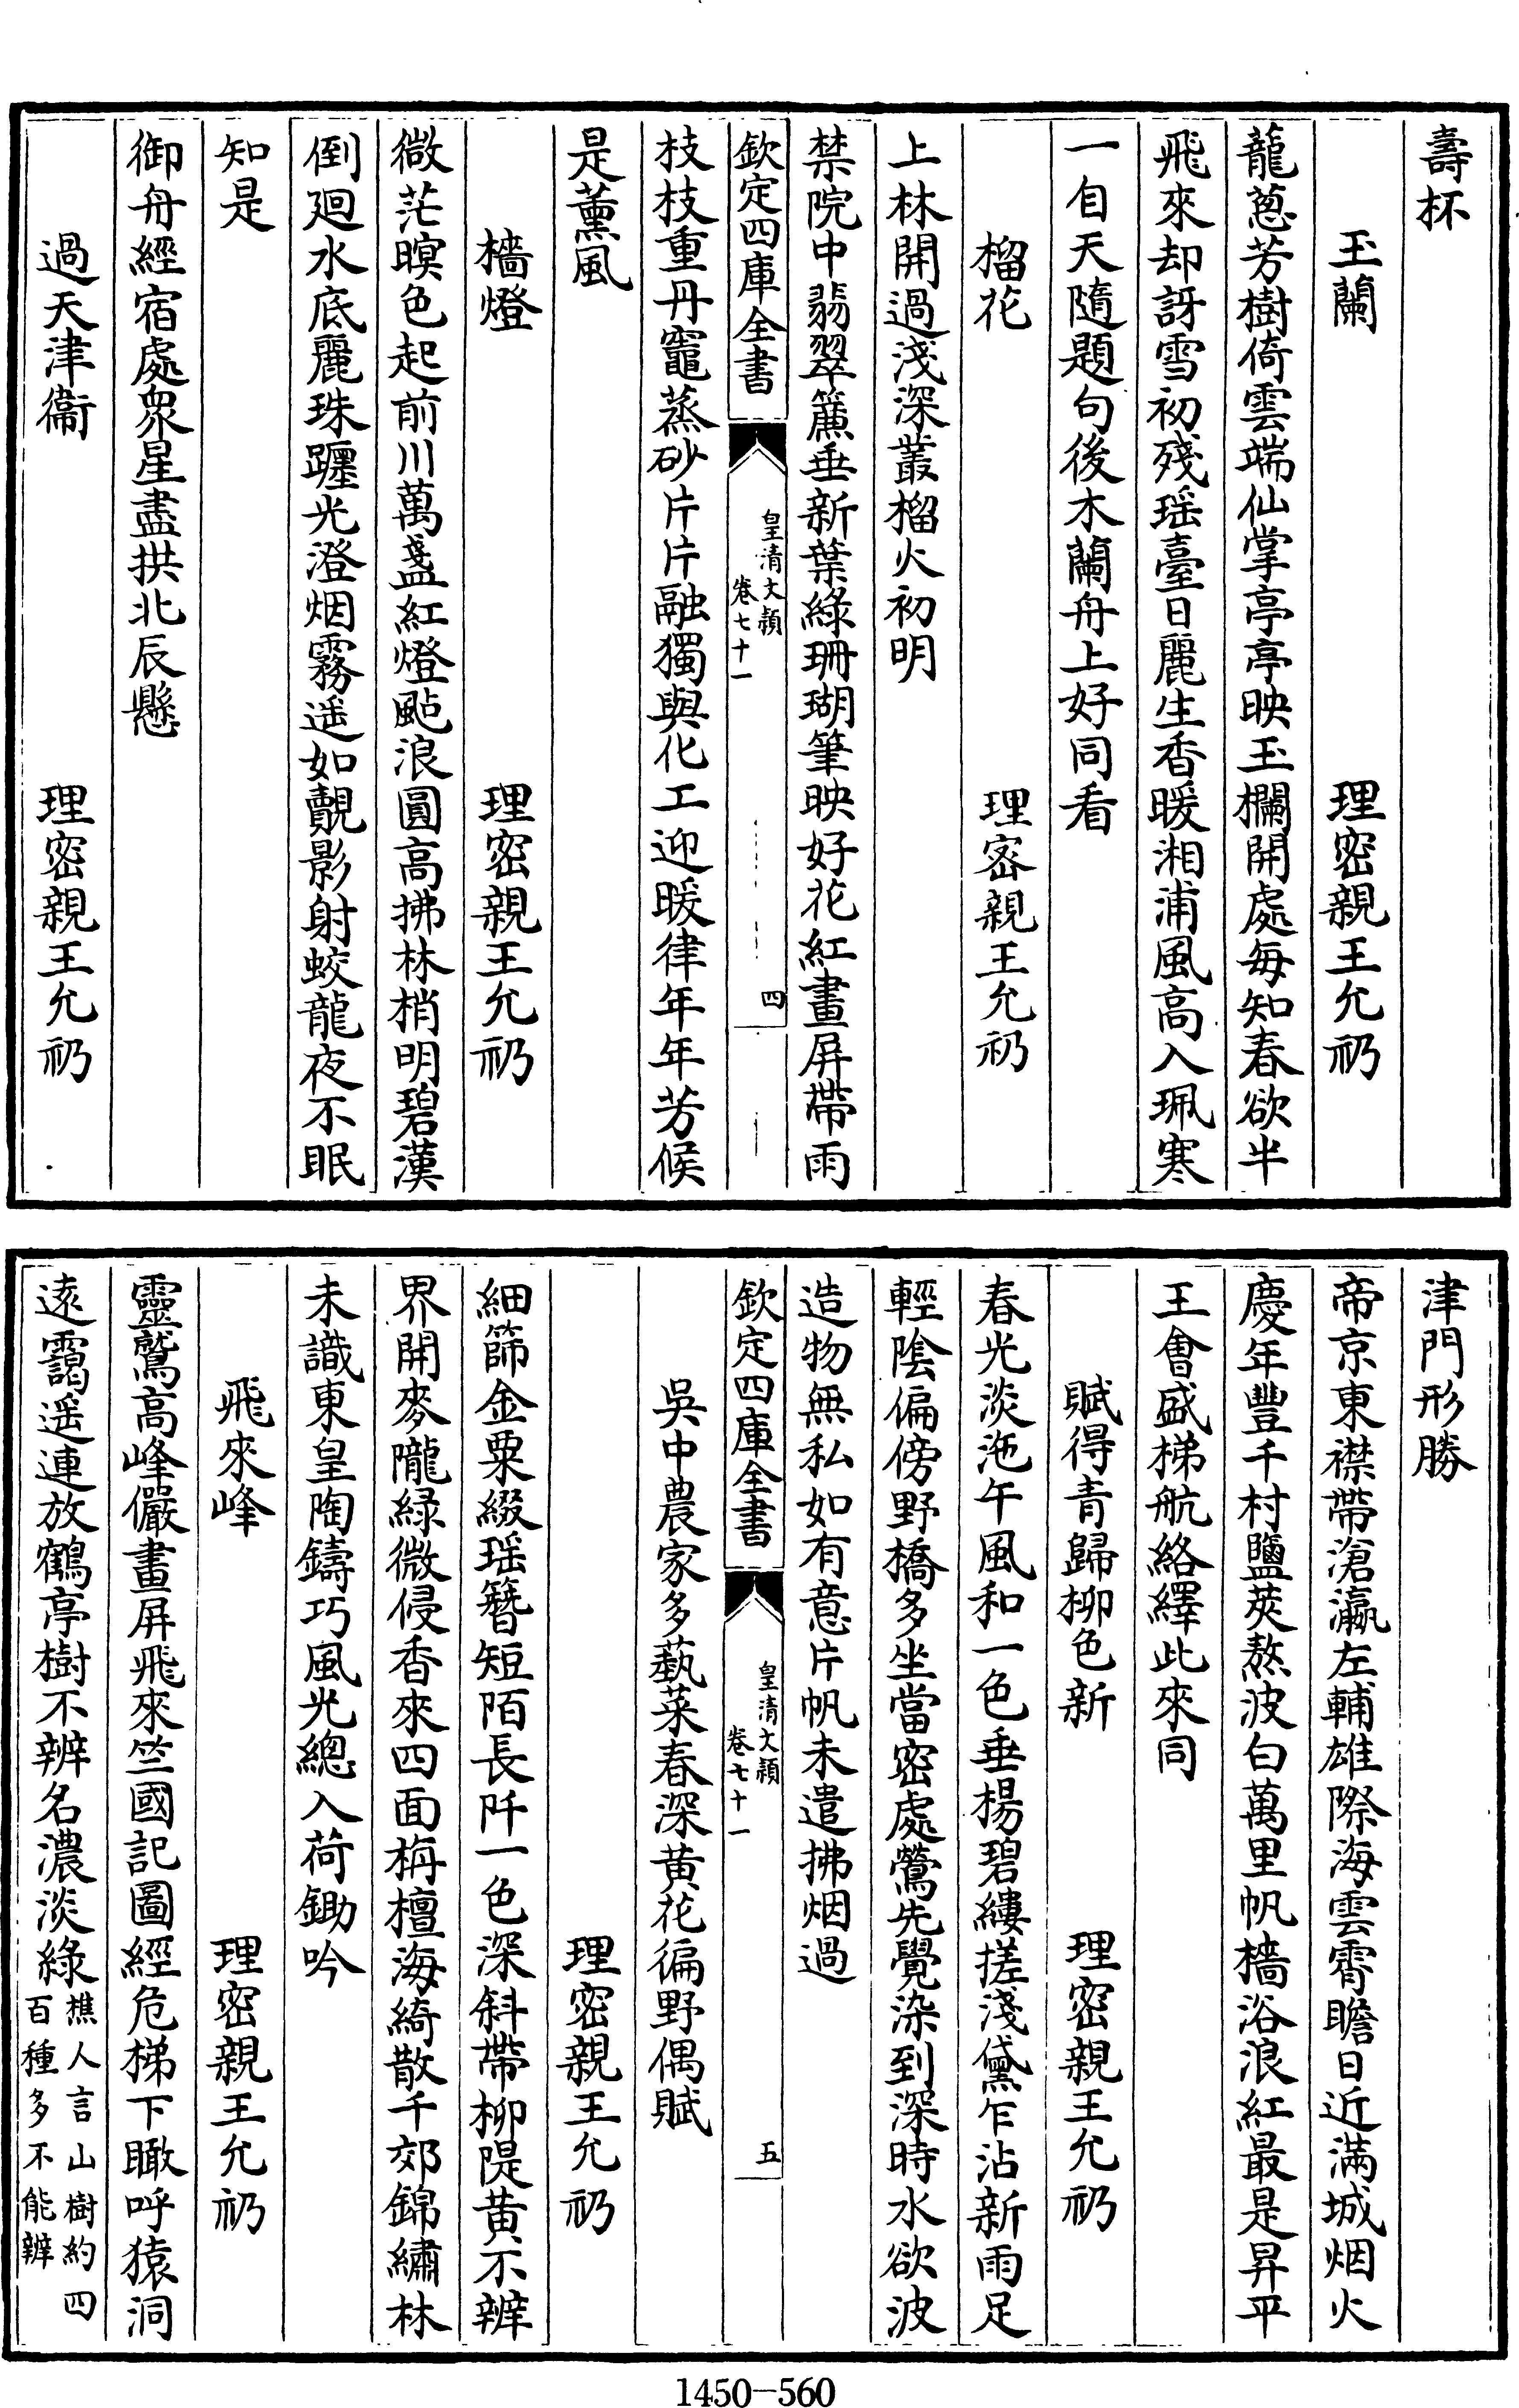 壽杯
玉蘭　理密親王允礽
蘢蔥芳樹倚雲端仙掌亭亭映玉欄開處每知春欲半
飛來却訝雪初殘瑶臺日麗生香暖湘浦風高入珮寒
一自天隨題句後木蘭舟上好同看
榴花　理密親王允礽
上林開過淺深叢榴火初明
禁院中翡翠簾垂新葉綠珊瑚筆映好花紅畫屏帶雨
欽定四庫全書　皇清文穎　卷七十一　四
枝枝重丹竈蒸砂片片融獨與化工迎暖律年年芳候
是薰風
檣燈　理密親王允礽
微茫暝色起前川萬盞紅燈颭浪圓高拂林梢明碧漢
倒廻水底麗珠躔光澄烟霧遥如覿影射蛟龍夜不眠
知是
御舟經宿處衆星盡拱北辰懸
過天津衞　理密親王允礽
津門形勝
帝京東襟帶滄瀛左輔雄際海雲霄瞻日近滿城烟火
慶年豐千村鹽莢熬波白萬里帆檣浴浪紅最是昇平
王會盛梯航絡繹此來同
賦得青歸柳色新　理密親王允礽
春光淡沲午風和一色垂楊碧縷搓淺黛乍沾新雨足
輕陰偏傍野橋多坐當密處鶯先覺染到深時水欲波
造物無私如有意片帆未遣拂烟過
欽定四庫全書　皇清文穎　卷七十一　五
吳中農家多藝菜春深黄花徧野偶賦
理密親王允礽
細篩金粟綴瑶簪短陌長阡一色深斜帶柳隄黄不辨
界開麥隴緑微侵香來四面栴檀海綺散千郊錦繡林
未識東皇陶鑄巧風光總入荷鋤吟
飛來峰　理密親王允礽
靈鷲高峰儼畫屏飛來竺國記圖經危梯下瞰呼猿洞
遠靄遥連放鶴亭樹不辨名濃淡綠樵人言山樹約四百種多不能辨
1450—560